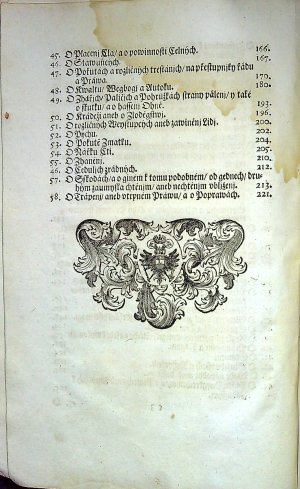 45. O Placenj Cla/ a o powinnosti Celných. 166.
46. O Stawunčých. 167.
47. O Pokutách a rozličných trestánjch/ na přestupnjky řádu
a Práwa. 170.
48. O Kwaltu/ Weybogi a Autoku. 180.
49. O Zhářjch/ Paličjch a Pohružkách strany pálenj/ y také
o ssturku/ a o hassenj Ohně. 193.
50. O Krádeži aneb o Zlodegstwj. 196.
51. O rozličných Weystupcých aneb zawiněnj Lidj. 200.
52. O Pychu. 202.
53. O Pokutě Zmatku. 204.
54. O Nářku Cti. 205.
55. O Zhanenj. 210.
56. O Ceduljch zrádných. 212.
57. O Sskodách/ a o giném k tomu podobném/ od gedněch/ dru-
hým zaumysla chtěním/ aneb nechtěným vbljženj. 213.
58. O Trápenj aneb vtrpném Práwu/ a o Poprawách. 221.